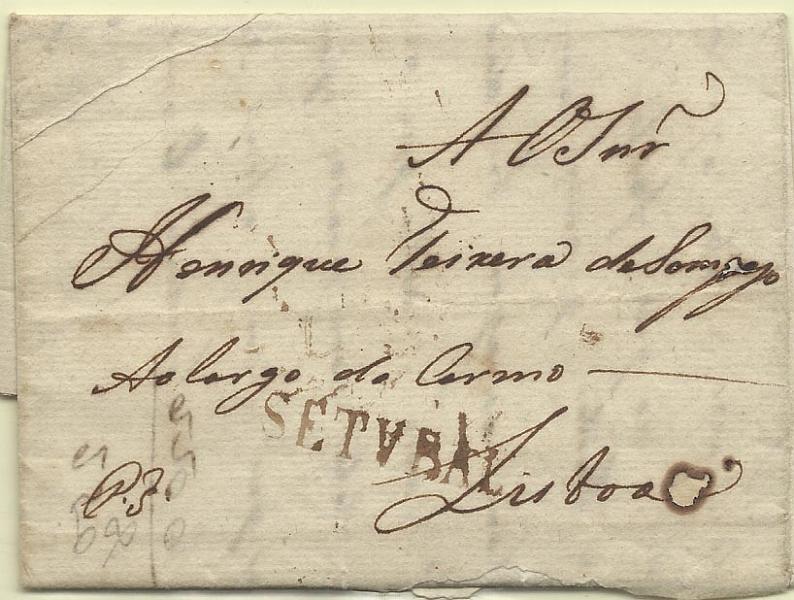 A O Snr
Henrique Teixera de Sampayo
Ao largo do Carmo
SETVBAL
P. J. Lisboa